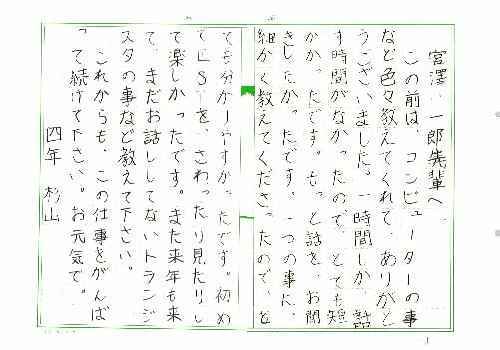 宮澤、一郎先輩へ
この前は、コンピューターの事
など色々教えてくれて、ありがと
うございました。一時間しか、話
す時間がなかったので、とても短
かかったです。もっと話を、お聞
きしたかったです。一つの事に、
細かく教えてくださったので、と
ても分かりやすかったです。初め
てLSIを、さわったり見たりし
て楽しかったです。また来年も来
て、まだお話ししてないトランジ
スタの事など教えて下さい。
これからも、この仕事をがんば
って続けて下さい。お元気で。
四年 杉山